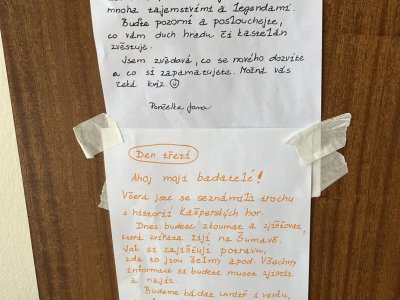 mnoha tajemstvími a legendami.
Buďte pozorní a poslouchejte,
co vám duch hradu či kastelán
zvěstuje.
Jsem zvědavá, co se nového dozvíte
a co si zapamatujete. Možná vás
čeká kvíz.
Pančelka Jana
Den třetí
Ahoj moji badatelé!
Včera jste se seznámili trochu
s historií Kašperských hor.
Dnes budete zkoumat a zjišťovat,
která zvířata žijí na Šumavě.
Jak si zajišťují potravu,
zda to jsou šelmy apod. Všechny
informace si budete muset zjistit
a najít.
Budeme bádat uvnitř i venku,